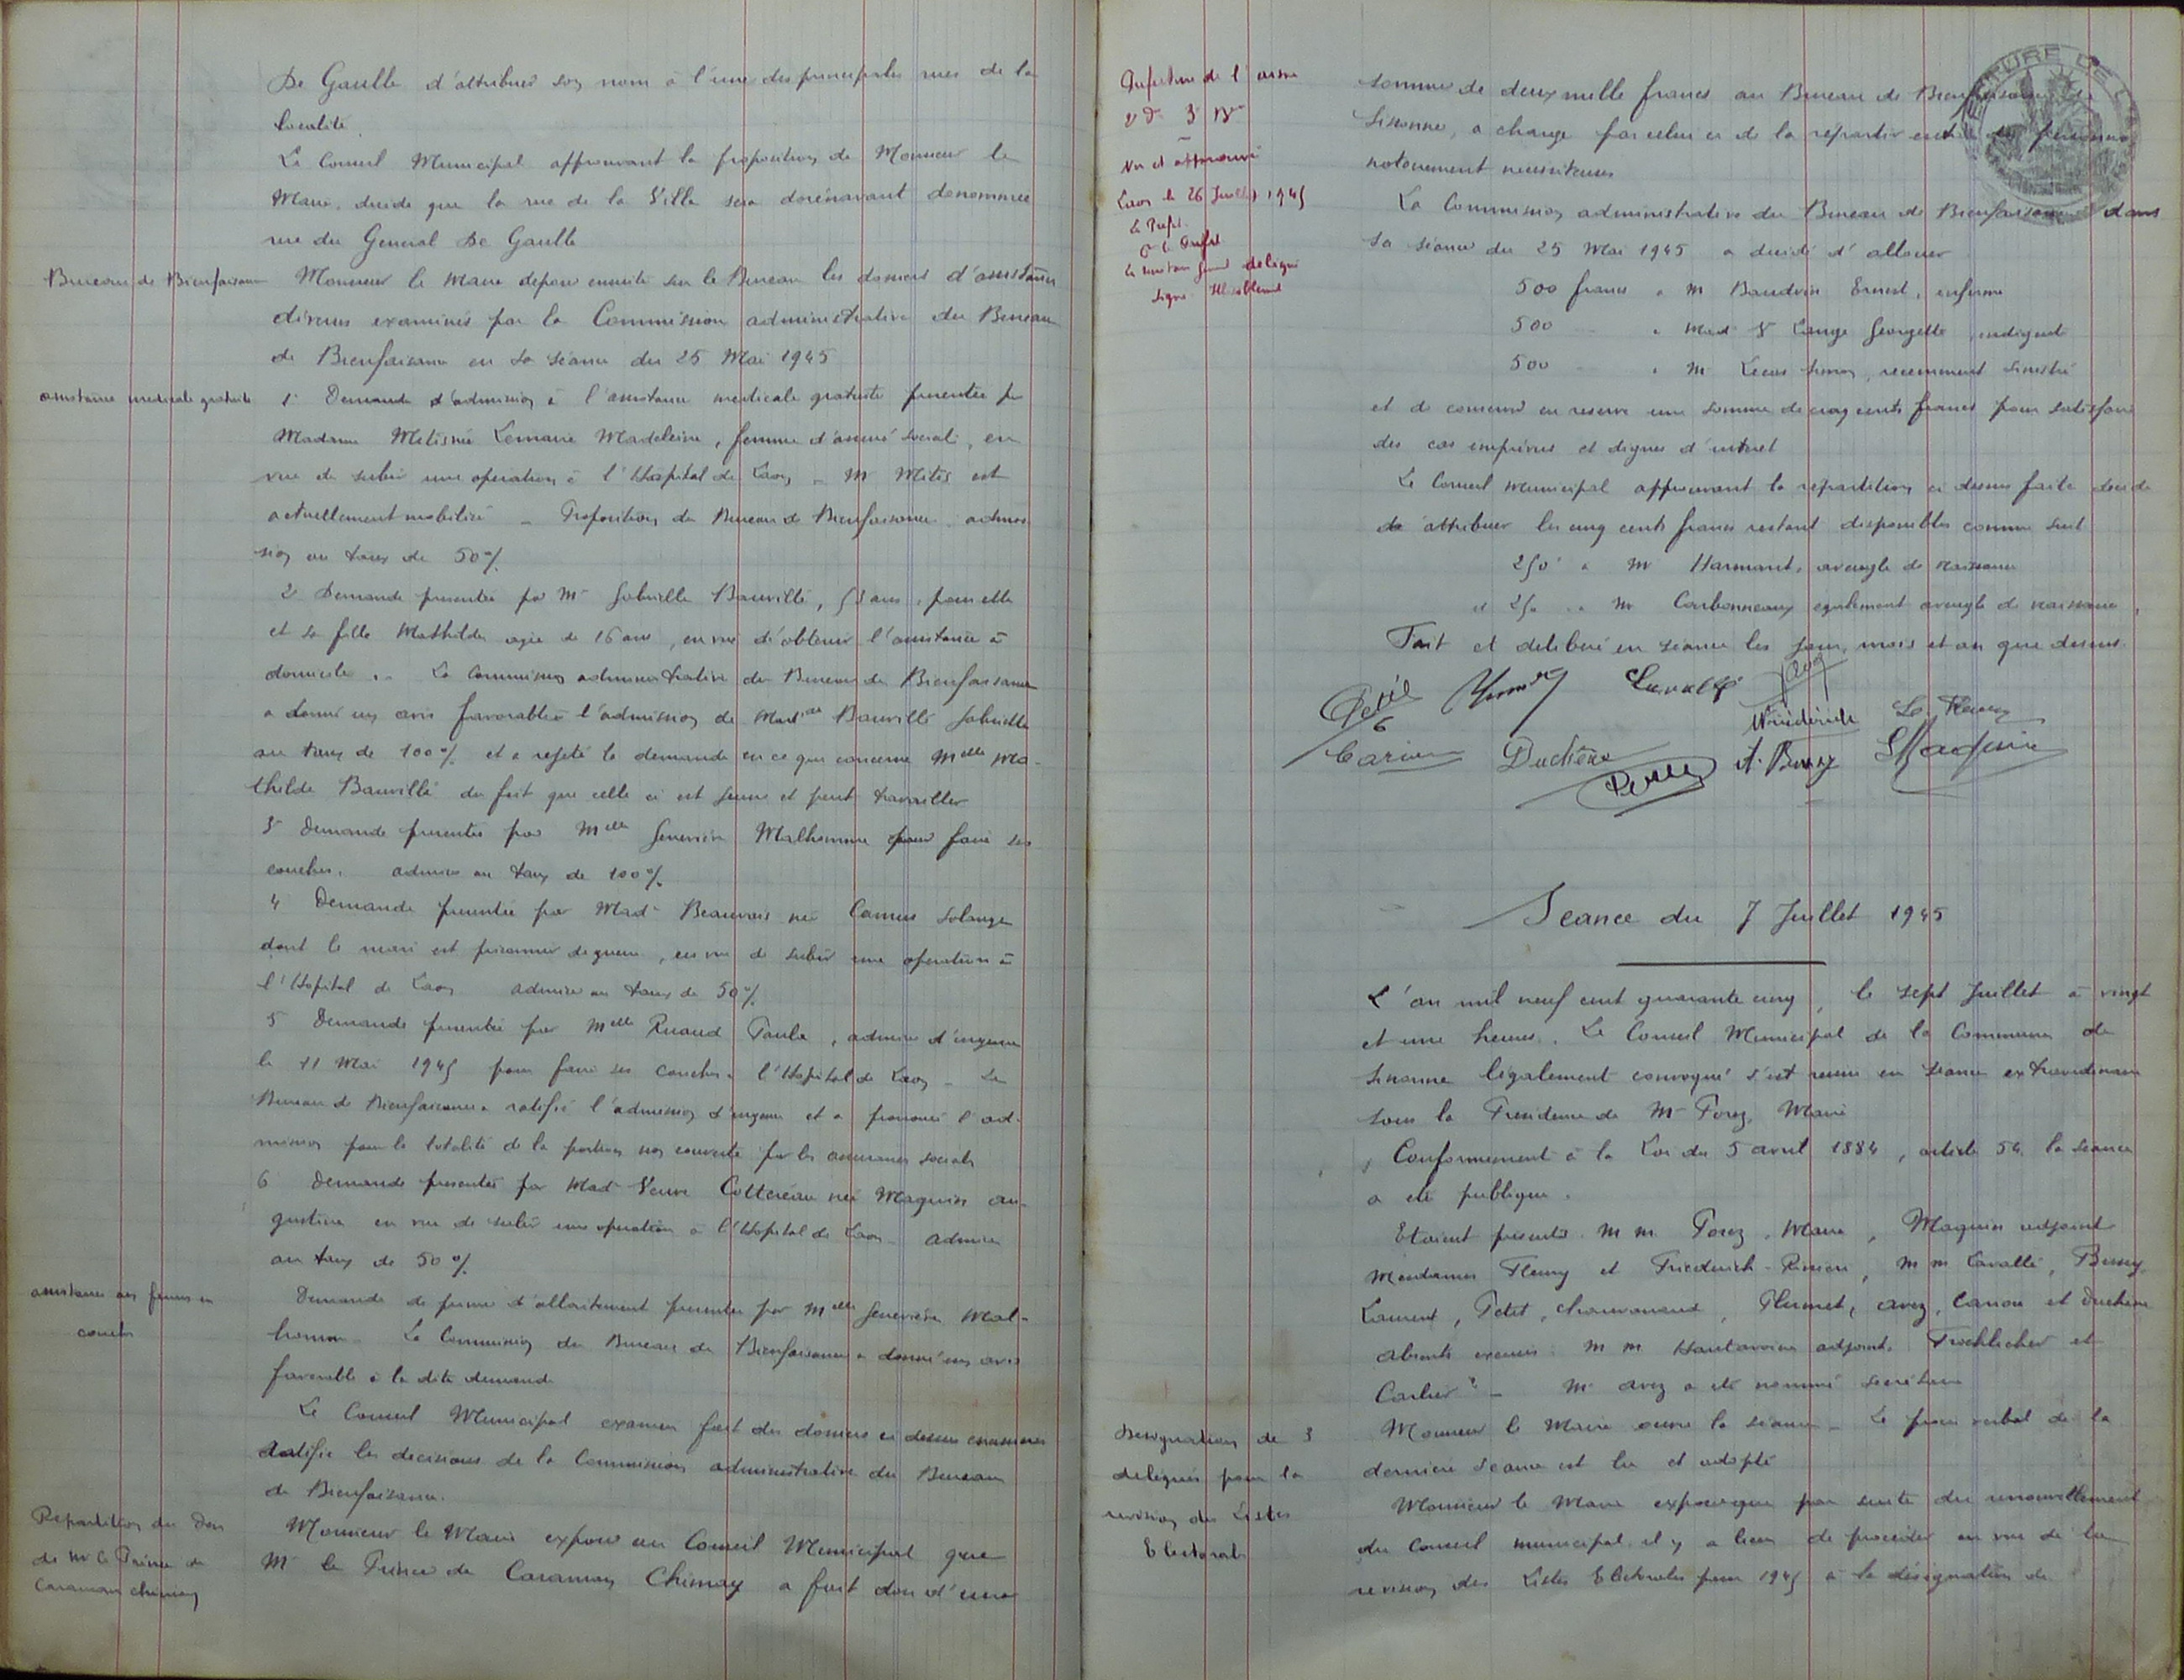 De Gaulle d'attribuer son nom à l'une des principales rues de la
localité.
Le Conseil Municipal approuvant la proposition de Monsieur le
Maire, decide que la rue de la Ville sera dorénavant denommée
rue du General De Gaulle
Bureau de Bienfaisance
Monsieur le Maire depose ensuite sur le Bureau les dossiers d'assistance
divers examinés par la Commission administrative du Bureau
de Bienfaisance en sa séance du 25 Mai 1945
assistance medicale gratuite
1° Demande d'admission à l'assistance medicale gratuite presentée par
Madame Metis née Lemaire Madeleine, femme d'assuré social, en
vue de subir une operation à l'Hôpital de Laon _ Mr Metis est
actuellement mobilisé _ Proposition du Bureau de Bienfaisance admis
sion au taux de 50%
2° Demande presentée par Mme Gabrielle Bauvillé, 53 ans, pour elle
et sa fille Mathilde agée de 16 ans, en vue d'obtenir l'assistance à
domicile. La Commission administrative du Bureau de Bienfaisance
a donné un avis favorable à l'admission de Madme Bauvillé Gabrielle
au taux de 100% et a rejeté la demande en ce que concerne Melle Ma-
thilde Bauvillé du fait que celle ci est jeune et peut travailler
3° Demande presentée par Melle Geneviève Malhomme pour faire ses
couches. admise au taux de 100%
4° Demande presentée par Made Beauvais née Camus Solange
dont le mari est prisonnier de guerre, en vue de subir une opération à
l'Hôpital de Laon admise au taux de 50%
5° Demande presentée par Melle Ruaud Paule, admise d'urgence
le 11 Mai 1945 pour faire ses couches à l'Hôpital de Laon _ Le
Bureau de Bienfaisance a ratifié l'admission d'urgence et a prononcé l'ad-
mission pour la totalité de la portion non couverte par les assurances sociales
6° Demande presentée par Made Veuve Cottereau née Maguin au-
gustine en vue de subir une operation à l'Hôpital de Laon _ admise
au taux de 50%
assistance aux femmes en
couches
Demande de prime d'allaitement presentée par Melle Geneviève Mal-
homme _ La Commission du Bureau de Bienfaisance a donné un avis
favorable à la dite demande
Le Conseil Municipal examen fait des dossiers ci dessus
ratifie les decisions de la Commission administrative du Bureau
de Bienfaisance.
Repartition du Don
de Mr le Prince de
Caraman Chimay
Monsieur le Maire expose au Conseil Municipal que
Mr le Prince de Caraman Chimay a fait don d'une
Prefecture de l'aisne
2e Don 3e Beau
Vu et approuvé
Laon le 26 Juillet 1945
Le Prefet
Pr le Prefet
Le secretaire general delegué
signé
somme de deux mille francs au Bureau de Bienfaisance de
Sissonne, a charge par celui ci de la repartir entre des personnes
notoirement necessiteuses
La Commission administrative du Bureau de Bienfaisance dans
sa séance du 25 Mai 1945 a decidé d'allouer
500 francs à Mr Baudoin Ernest, infirme
500 à Made Ve Lange Georgette indigente
500 à Mr Simon, recemment sinistré
et de conserver en reserve une somme de cinq cents francs pour satisfaire
des cas imprévus et dignes d'interet
Le Conseil Municipal approuvant la repartition ci dessus faite decide
d'attribuer les cinq cents francs restant disponibles comme suit
250 à Mr Harmant, aveugle de naissance
et 250 à Mr Carbonneaux egalement aveugle de naissance,
Fait et deliberé en séance les jour, mois et an que dessus.
Petit Lavallé
Friederich L. Fleury
Carion Duchêne A. Bussy Maguin
Porez
Seance du 7 Juillet 1945
L'an mil neuf cent quarante cinq, le sept Juillet à vingt
et une heures. Le Conseil Municipal de la Commune de
Sissonne légalement convoqué s'est reuni en séance extraordinaire
sous la Presidence de Mr Porez, Maire
Conformement à la Loi du 5 avril 1884, article 54, la séance
a été publique.
Etaient presents. MM Porez, Maire, Maguin adjoint
Mesdames Fleury et Friederich-, MM Lavallé, Bussy,
Laurent, Petit, Chauvaneud, Plumet, avez, Carion et Duchêne
absents excusés: MM Hautavoine adjoint, Froehlicher et
Carlier _ Mr avez a été nommé secrétaire
Designation de 3
delegués pour la
revision des Listes
Electorales
Monsieur le Maire ouvre la séance _ Le procès verbal de la
dernière séance est lu et adopté
Monsieur le Maire expose que par suite du renouvellement
du Conseil municipal il y a lieu de proceder en vue de la
revision des Listes Electorales pour 1945 à la désignation de